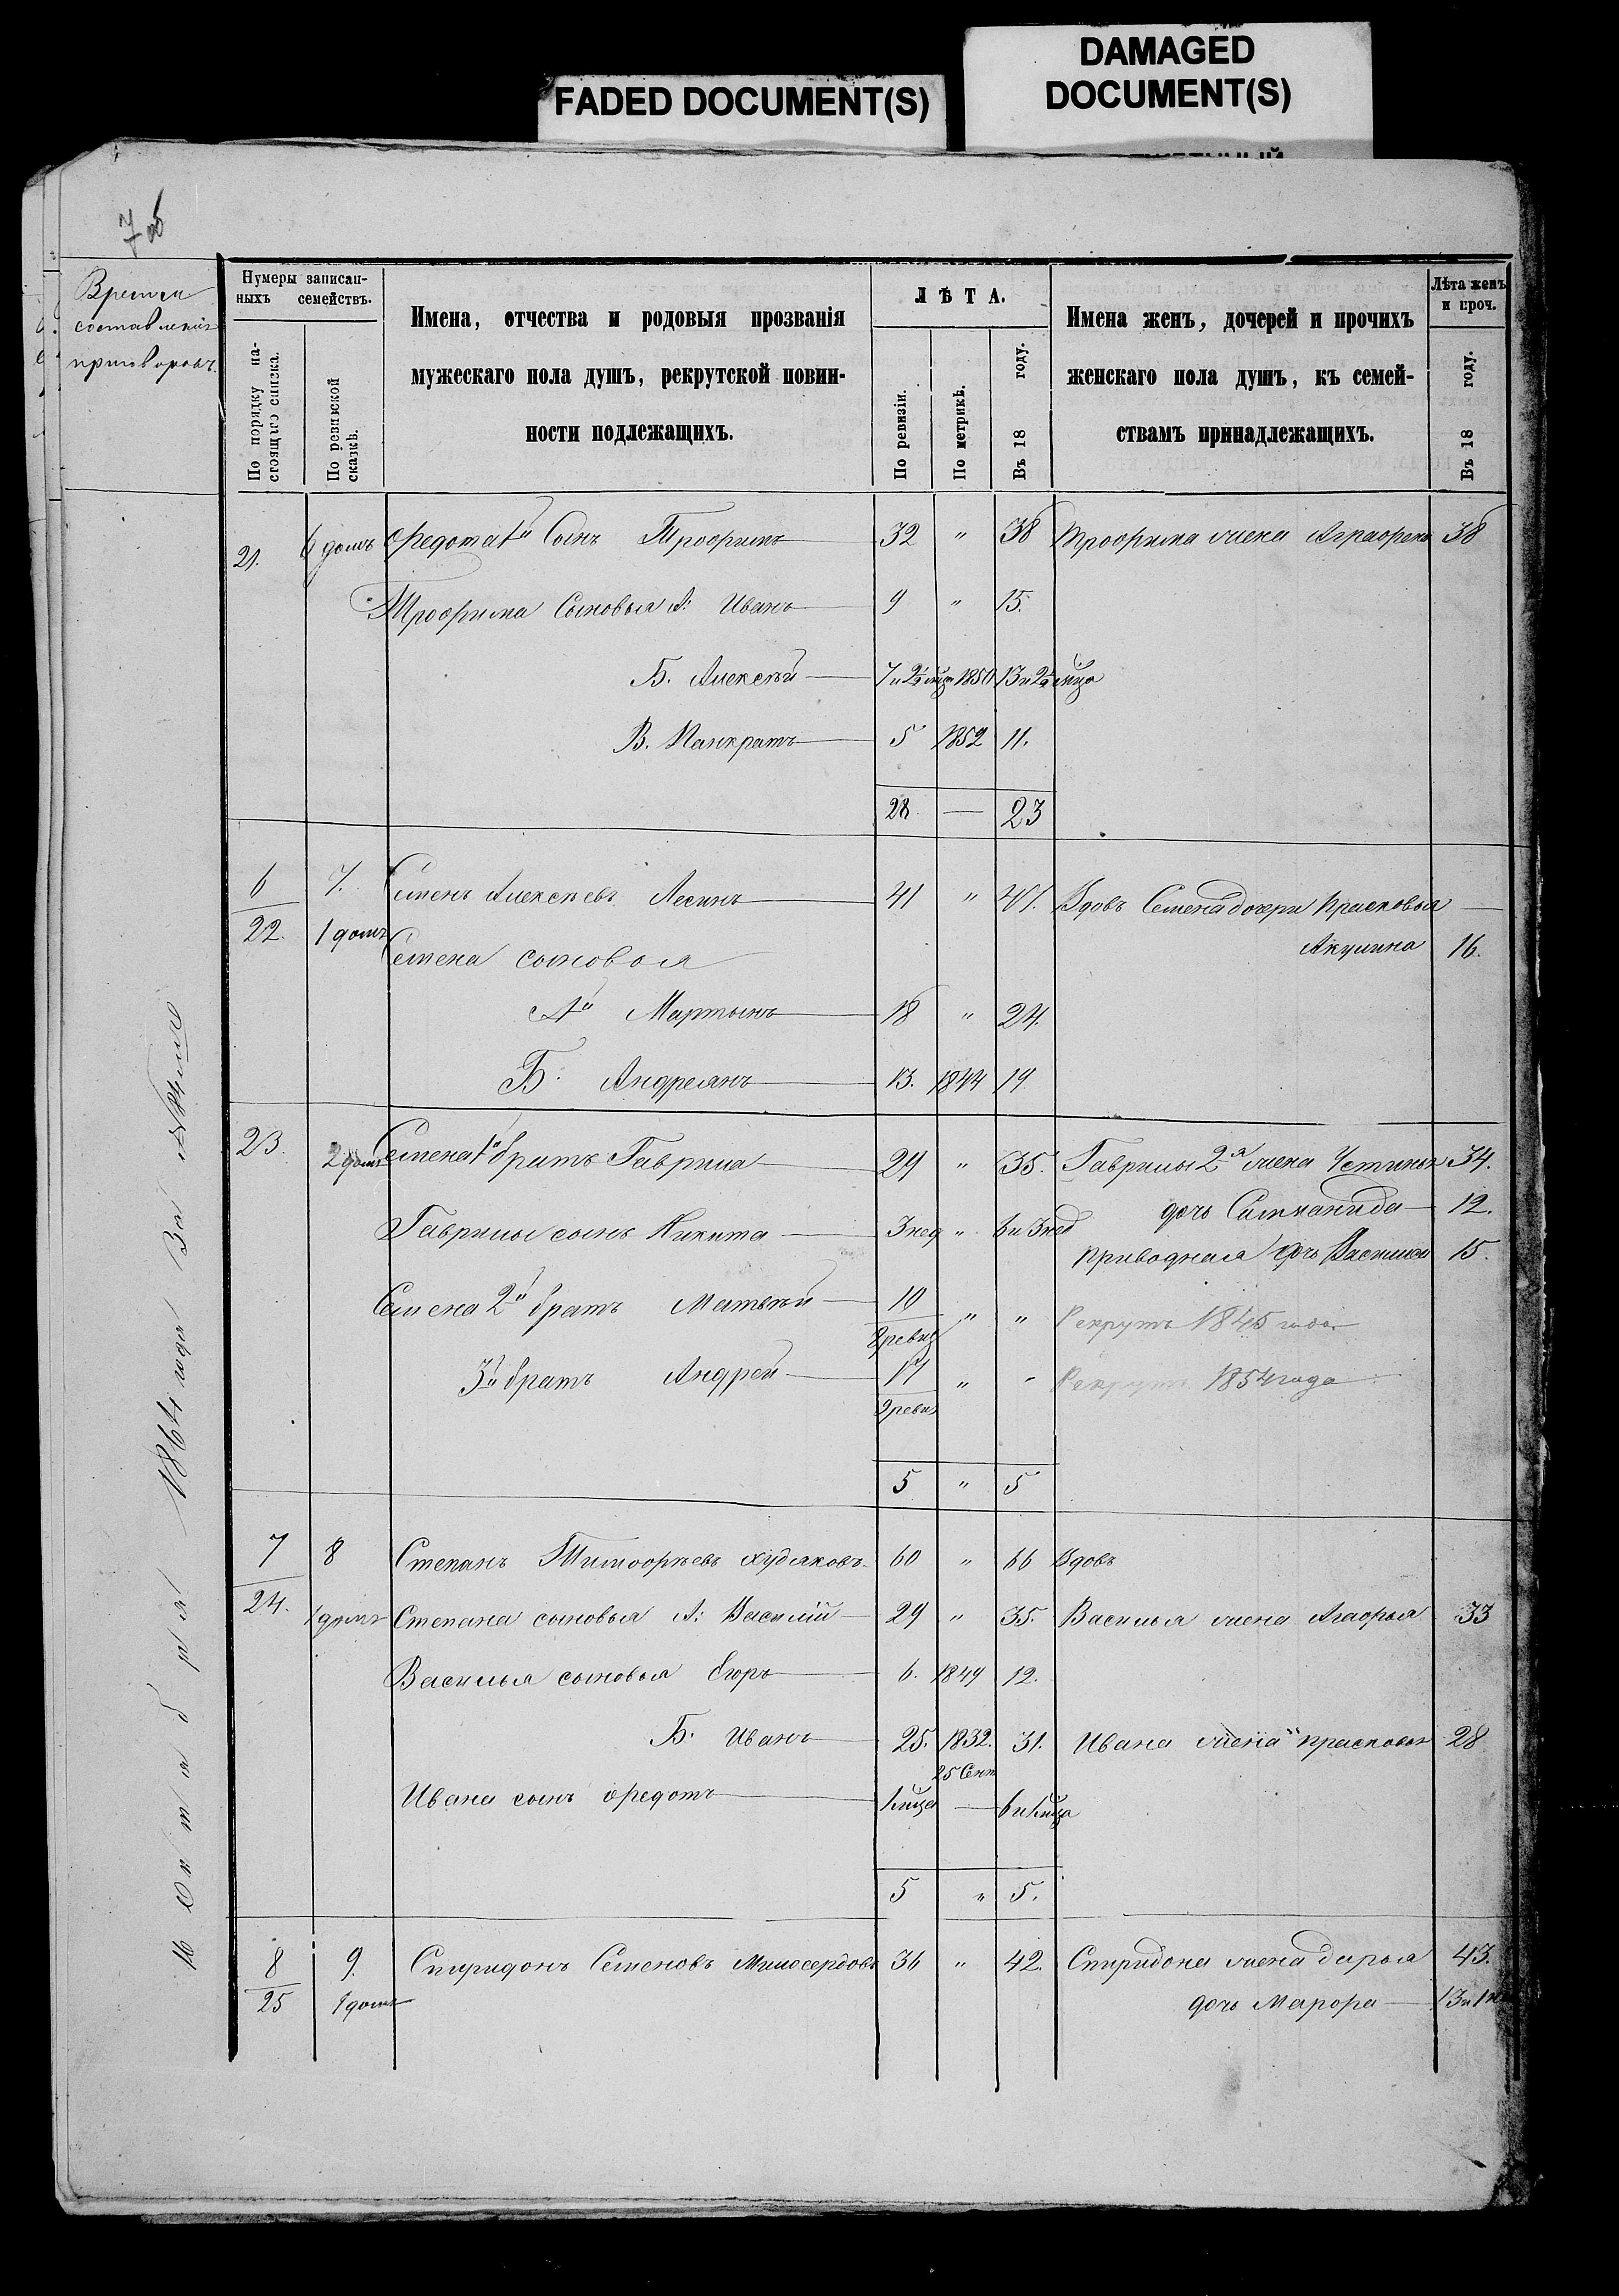 FADED DOCUMENT(S)
DAMAGED
DOCUMENT(S)
7 об
Время
составленія
приговоровъ.
Нумеры записан-
ныхъ семействъ.
По порядку на-
стоящаго списка.
По ревизской
сказкѣ.
Имена, отчества и родовыя прозванія
мужескаго пола душъ, рекрутской повин-
ности подлежащихъ.
ЛѢТА.
По ревизіи.
По метрикѣ.
Въ 18 году.
Имена женъ, дочерей и прочихъ
женскаго пола душъ, къ семей-
ствамъ принадлежащихъ.
Лѣта женъ
и проч.
Въ 18 году.
21. 6 домъ Ѳедота 1й Сынъ Трофимъ 32 " 38 Трофима жена Аграфена 38
Трофима Сыновья А: Иванъ 9 " 15.
Б. Алексѣй 7 и 2½ мца 1850 13 и 2½ мца
В. Панкратъ 5 1852 11.
28. — 23
6 7. Семенъ Алексѣевъ Лесинъ 41 " 47. Вдовъ Семена дочери Прасковья —
22. 1 домъ Семена сыновья Акулина 16.
А" Мартынъ 18 " 24.
Б. Андреянъ 13. 1844 19
23. 2 домъ Семена 1й братъ Гаврила 29 " 35. Гаврилы 2я жена Устинья 34.
дочь Соломанида 12.
Гаврилы сынъ Никита 3 нед " 6 и 3 нед
приводная дочь 15.
Семена 2й братъ Матвѣй 10 " " Рекрутъ 1845 года
9 ревиз
3й братъ Андрей 17 " " Рекрутъ 1854 года
9 ревиз
5 " 5
7 8 Степанъ Тимофѣевъ Худяковъ 60 " 66 Вдовъ
24. 1 домъ Степана сыновья А: Василій 29 " 35. Василья жена Агафья 33
Василья сыновья Егоръ 6. 1849 12.
Б. Иванъ 25. 1832. 31. Ивана жена Прасковья 28
25 Сент
Ивана сынъ Ѳедотъ 1 мца — 6 и 1 мца
5 " 5.
8 9. Спиридонъ Семеновъ Милосердовъ 36 " 42. Спиридона жена Дарья 43.
25 1 домъ дочь Марфа 13 и 1
16 Октября 1864 года За